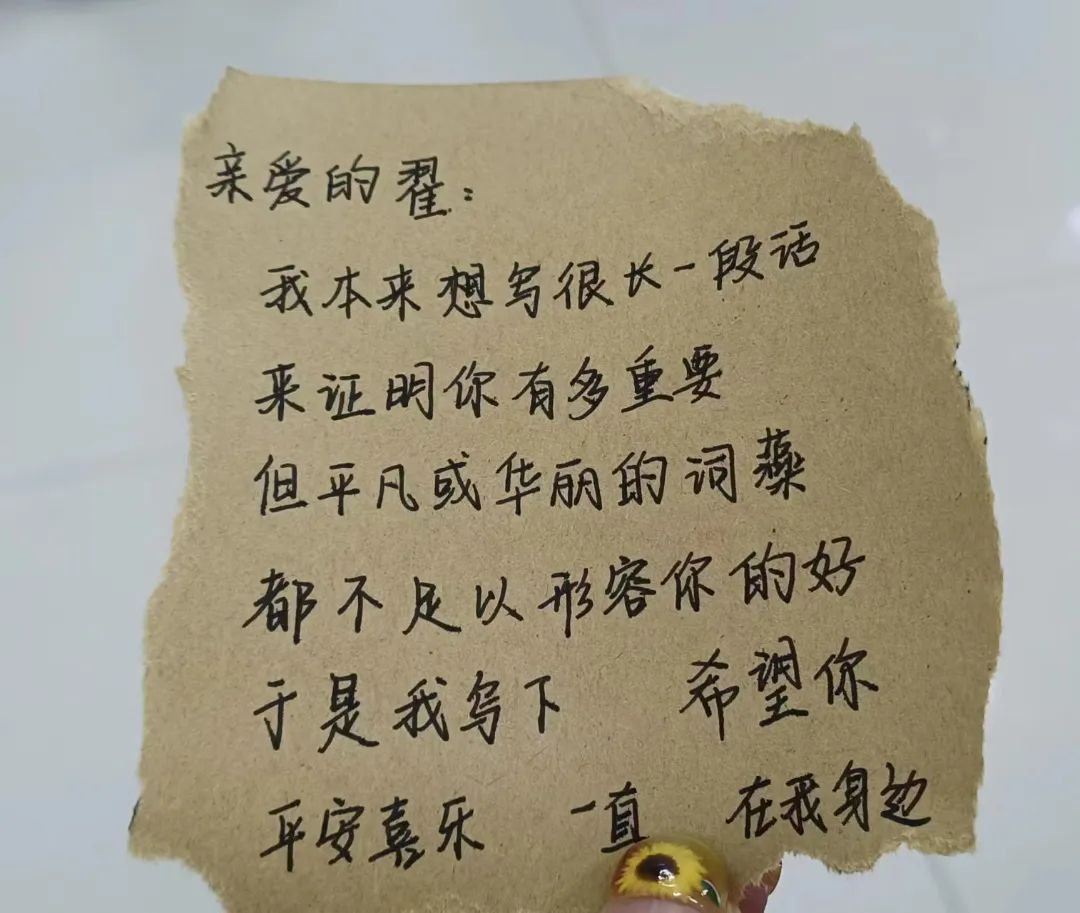 亲爱的翟：
我本来想写很长一段话
来证明你有多重要
但平凡或华丽的词藻
都不足以形容你的好
于是我写下 希望你
平安喜乐 一直 在我身边